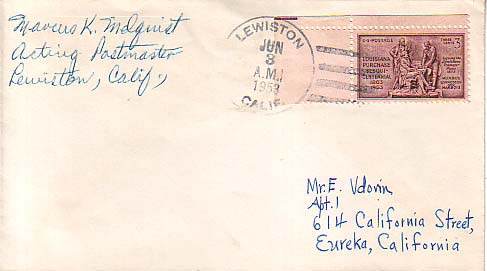 Marcus K. Mdquist
Acting Postmaster
Lewiston, Calif.,
LEWISTON
JUN
3
A.M.
1953
CALIF.
U·S·POSTAGE
THREE CENTS 3
LOUISIANA
PURCHASE
SESQUI-
CENTENNIAL
1803
1953
Mr. E. Vdovin
Apt. 1
614 California Street,
Eureka, California